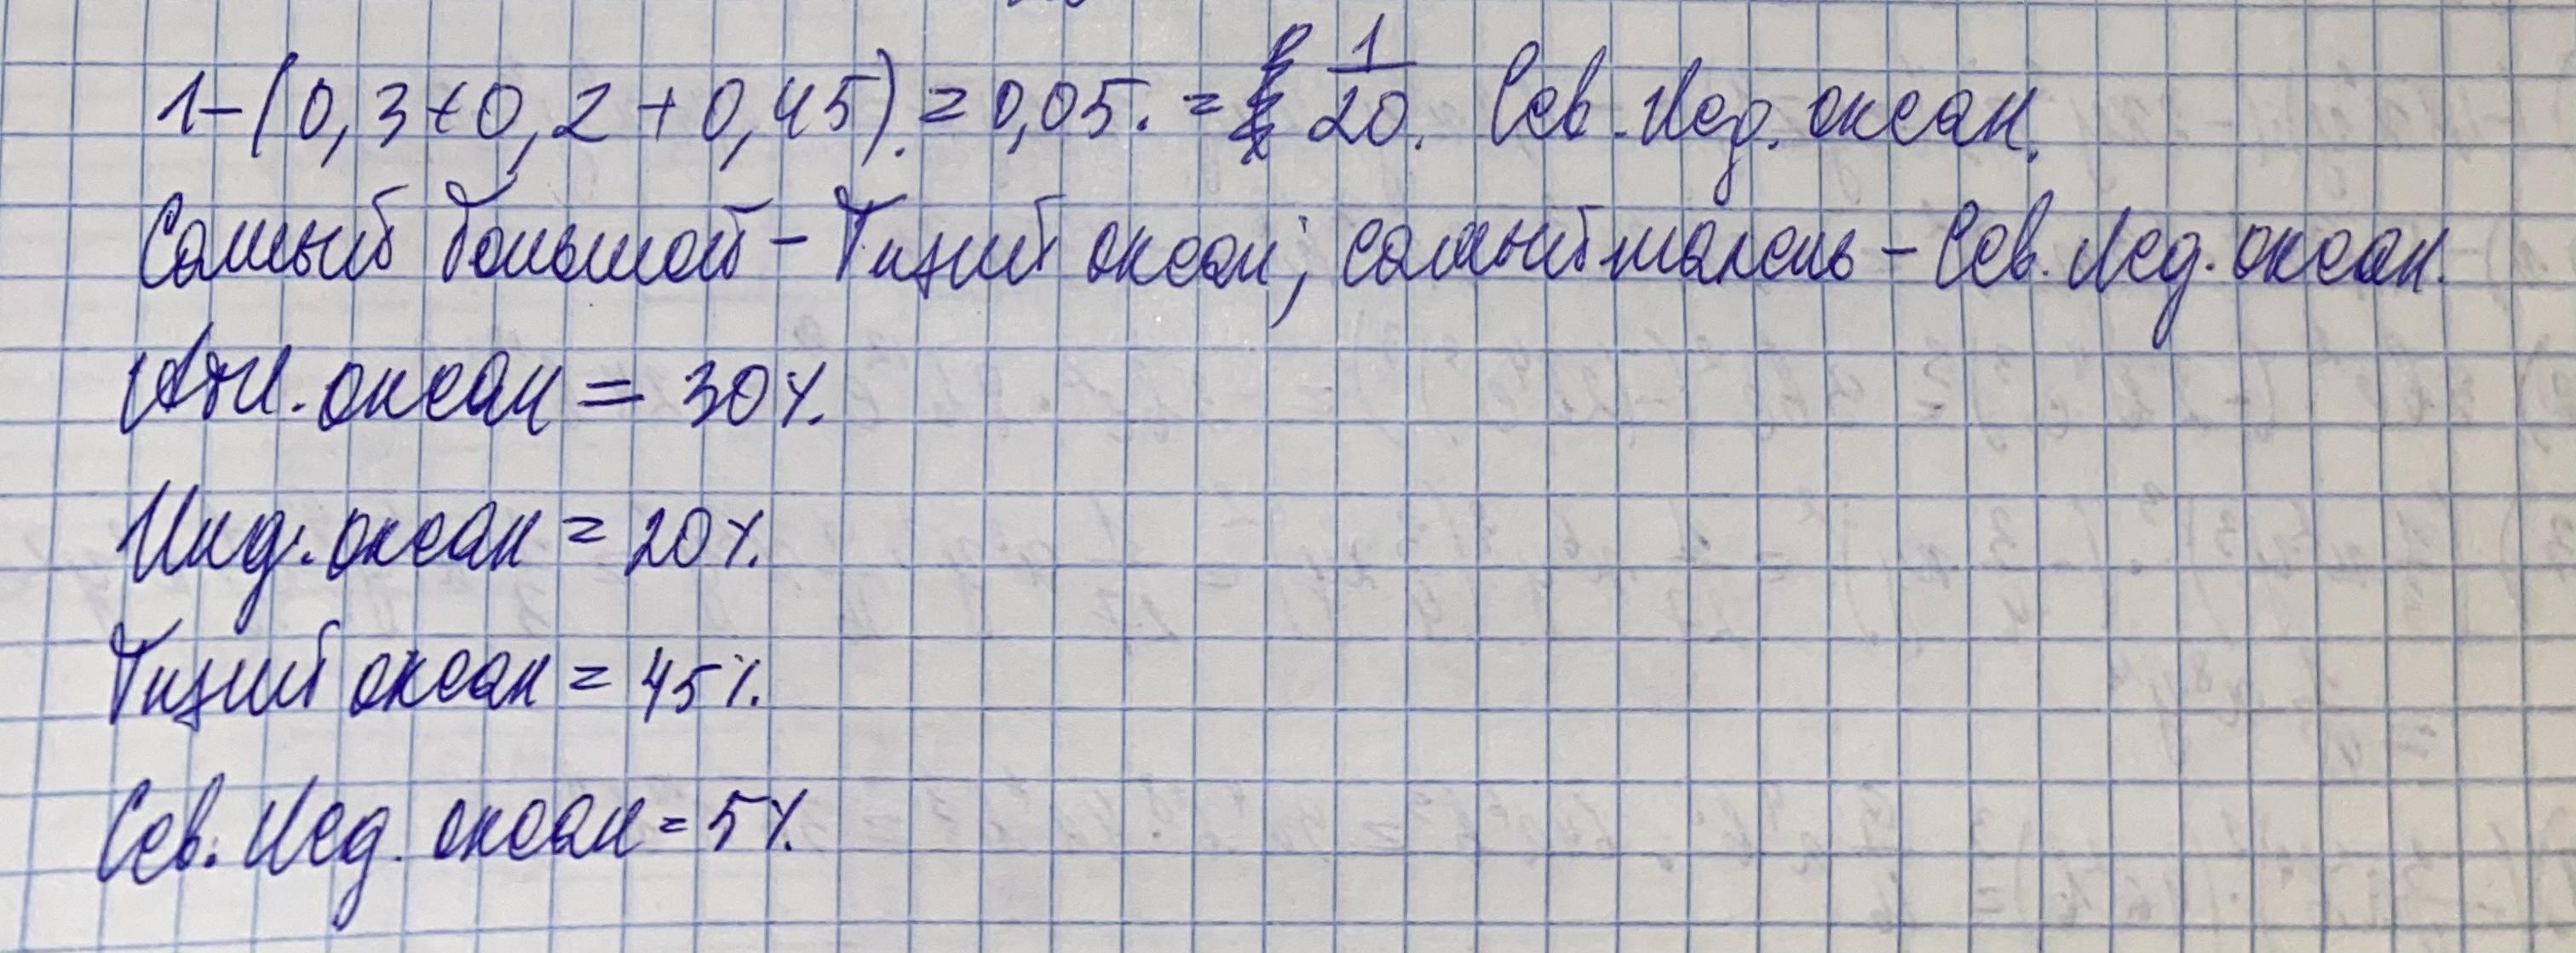 1-(0,3+0,2+0,45).=0,05.= 1/20. Сев. Лед. океан.
Самый большой - Тихий океан; самый малень - Сев. Лед. океан.
Атл. океан = 30%.
Инд. океан = 20%.
Тихий океан = 45%.
Сев. Лед. океан = 5%.